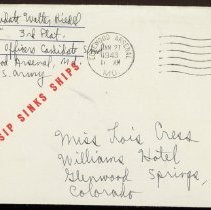 Walter Riedel
3rd Plat.
Officers Candidate
Arsenal, Md.
S. Army
EDGEWOOD ARSENAL
JAN 27
1943
AM
MD.
SIP SINKS SHIPS
Miss Lois Cress
Williams Hotel
Glenwood Springs,
Colorado